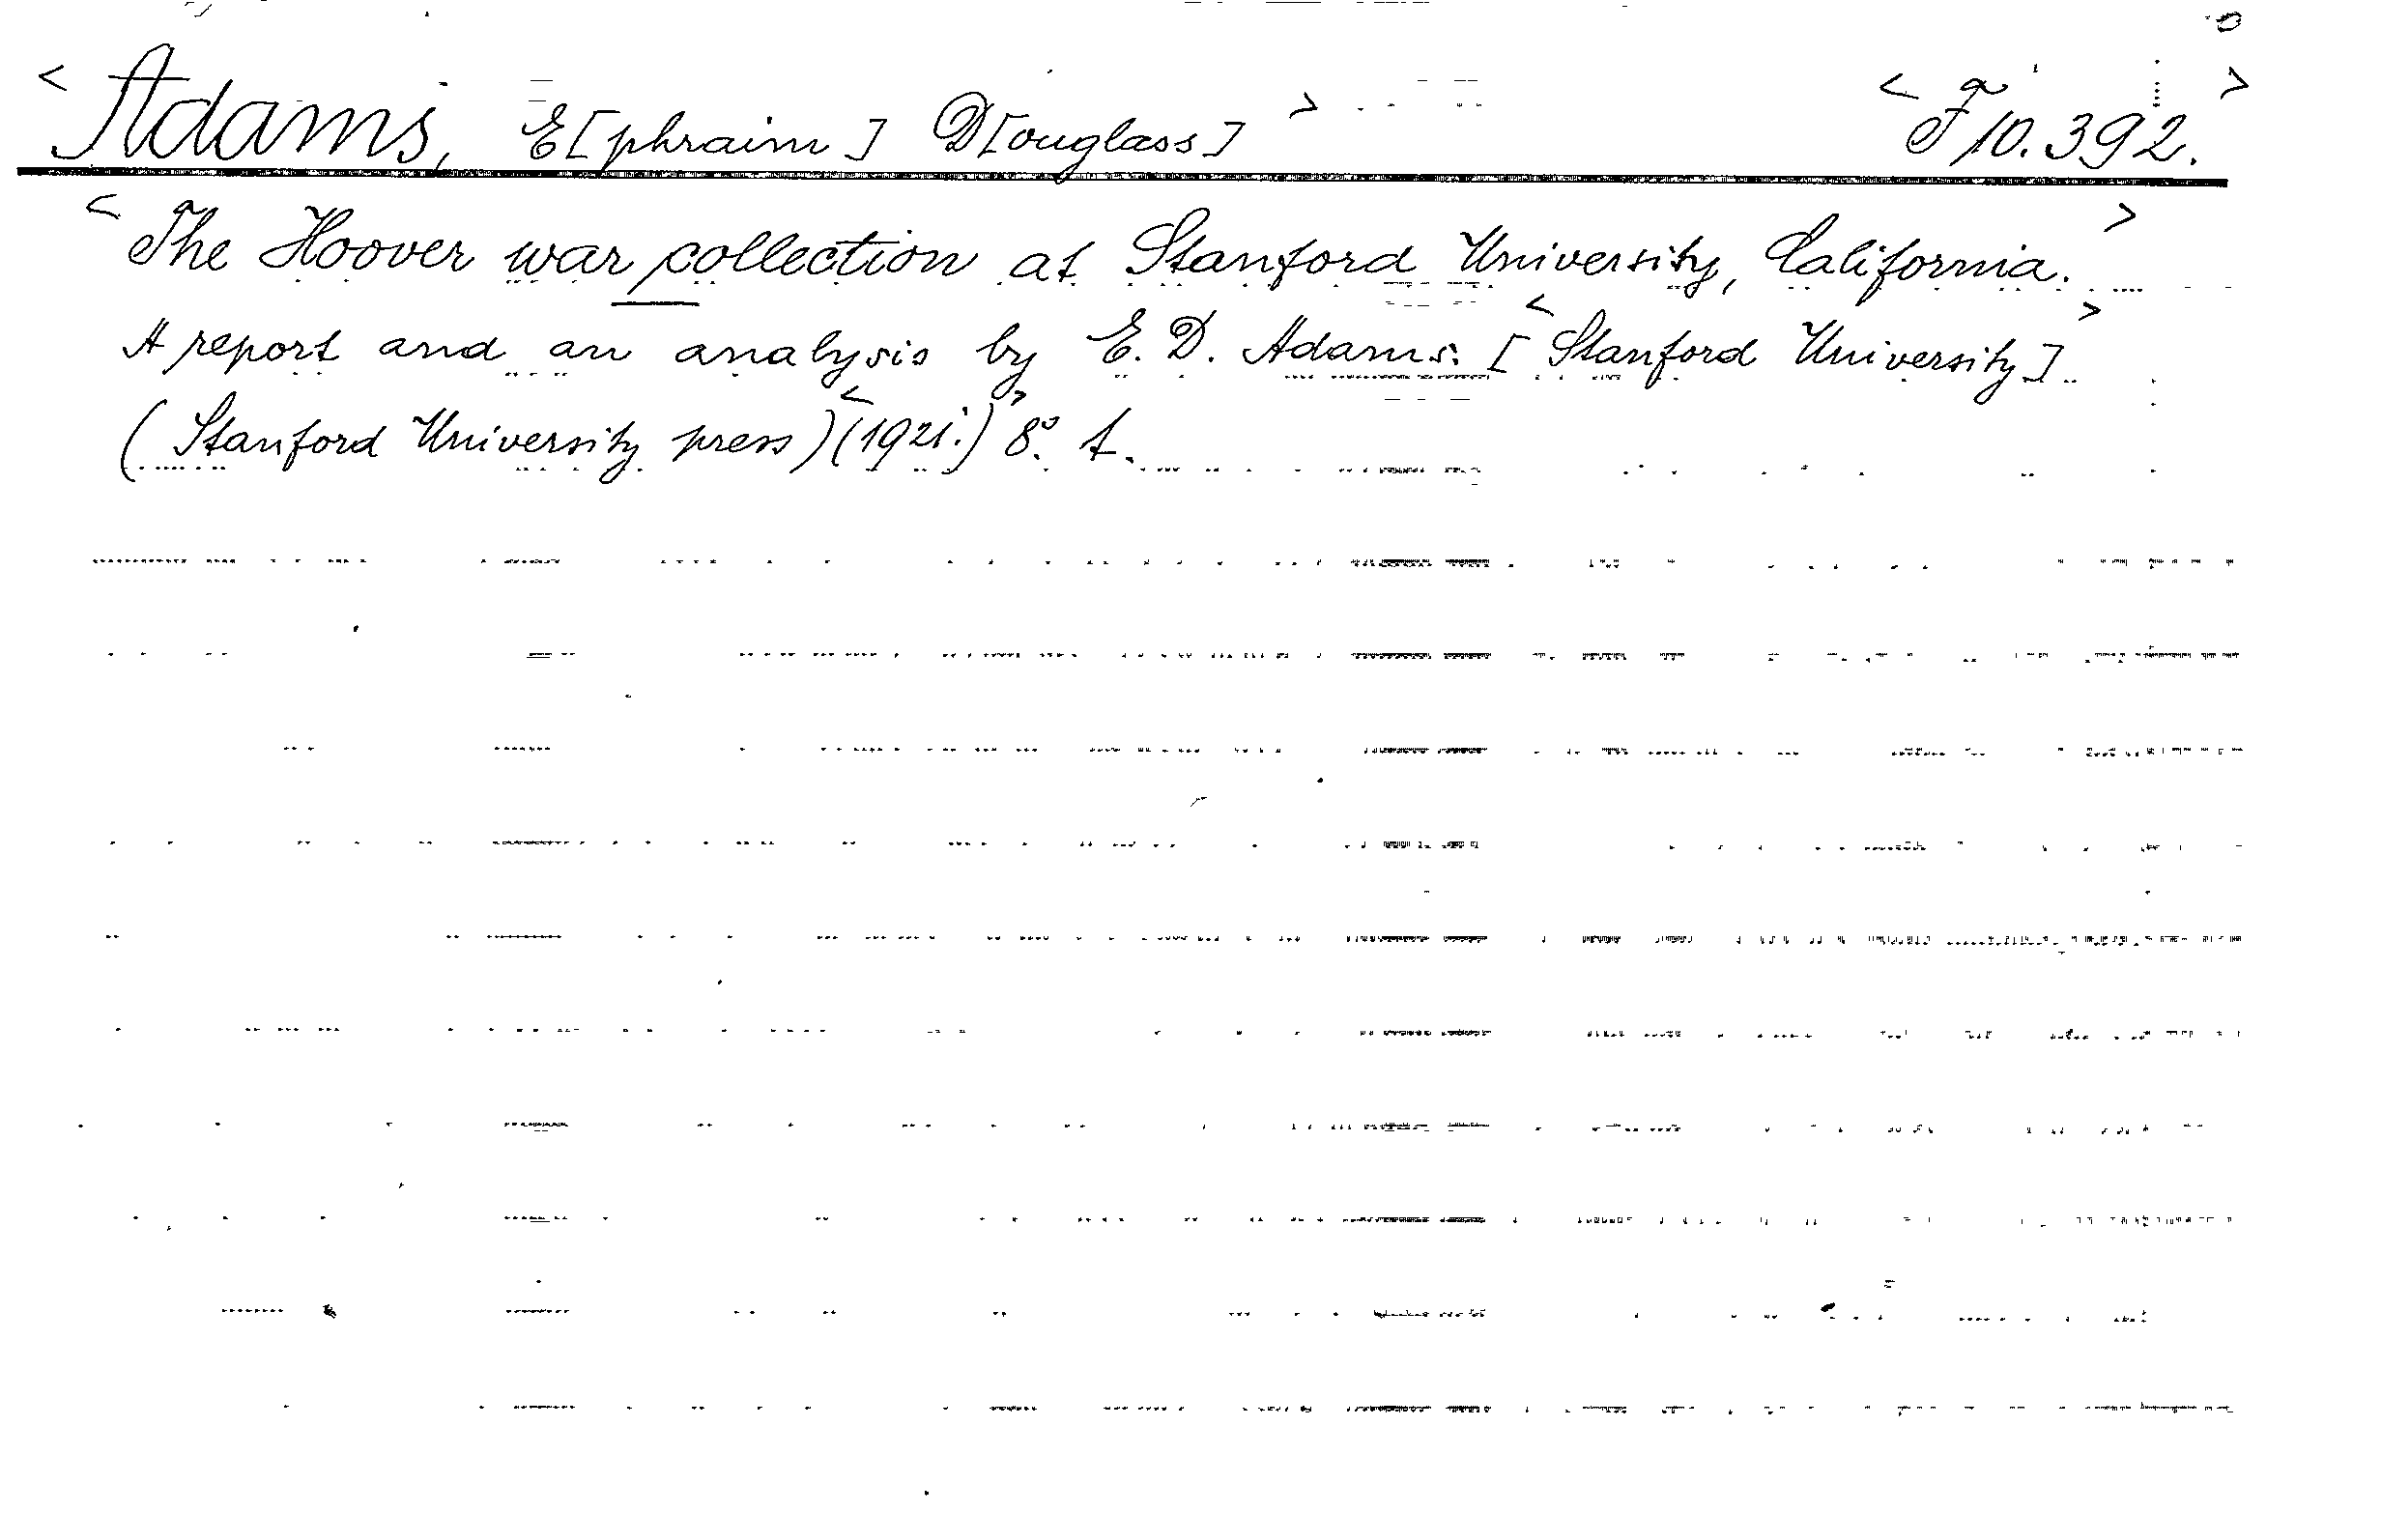 < Adams, E[phraim] D[ouglass] > < F 10.392. >
< The Hoover war collection at Stanford University, California. >
A report and an analysis by E. D. Adams. [< Stanford University] >
(Stanford University press) <(1921.)> 8° t.